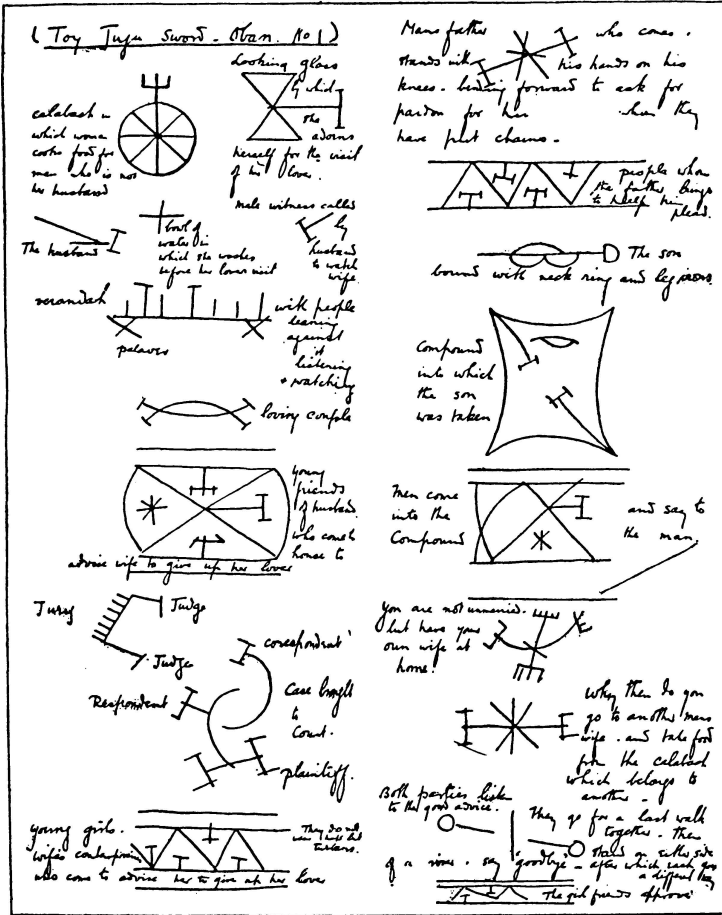 (Toy Juju Sword - Oban. No 1)
calabash in
which woman
cooks food for
man who is not
her husband
Looking glass
by which
she
adorns
herself for the visit
of his lover.
The husband
bowl of
water in
which she washes
before her lover visit
male witness called
by
husband
to watch
wife.
verandah
with people
leaning
against
it
listening
+ watching
palaver
loving couple
young
friends
of husband.
who come to
house to
advise wife to give up her lover
Jury
Judge
Judge
corespondent
Respondent
Case brought
to
Court.
plaintiff.
young girls.
wife's contemporaries
who come to advise her to give up her lover
They do not
Mans father who comes.
stands with his hands on his
knees. bending forward to ask for
pardon for her when they
have put chains.
people whom
the father brings
to help him
plead.
The son
bound with neck ring and leg irons.
Compound
into which
the son
was taken
Men come
into the
Compound
and say to
the man.
You are not unmarried.
but have your
own wife at
home!
Why then do you
go to another mans
wife. and take food
from the calabash
which belongs to
another.
Both parties listen
to the good advice.
They go for a last walk
together. Then
stand on either side
of a river. say "goodbye" - after which each goes
a different way
The girl friends approve